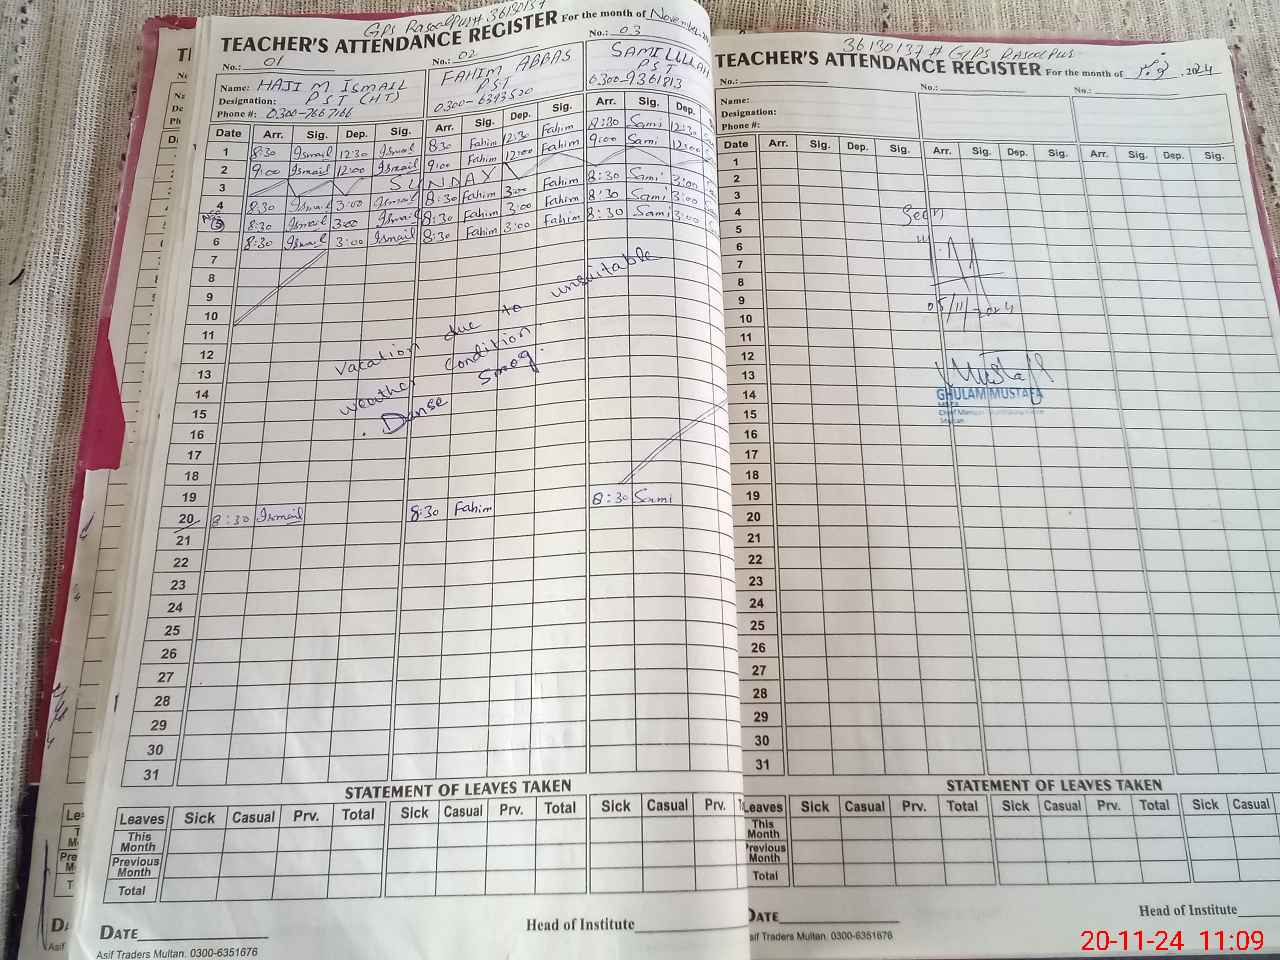 GPS Rasoolpur # 36130137
TEACHER'S ATTENDANCE REGISTER For the month of November
No.: 01 No.: 02 No.: 03
Name: HAJI M ISMAIL FAHIM ABBAS SAMEULLAH
Designation: PST (HT) PST PST
Phone #: 0300-7667166 0300-6393520 0300-9361813
Date Arr. Sig. Dep. Sig. Arr. Sig. Dep. Sig. Arr. Sig. Dep.
1 8:30 Ismail 12:30 Ismail 8:30 Fahim 12:30 Fahim 8:30 Sami 12:30
2 9:00 Ismail 12:00 Ismail 9:00 Fahim 12:00 Fahim 9:00 Sami 12:00
3 SUNDAY
4 8:30 Ismail 3:00 Ismail 8:30 Fahim 3:00 Fahim 8:30 Sami 3:00
5 8:30 Ismail 3:00 Ismail 8:30 Fahim 3:00 Fahim 8:30 Sami 3:00
6 8:30 Ismail 3:00 Ismail 8:30 Fahim 3:00 Fahim 8:30 Sami 3:00
7
8
9
10
11
12
13
14
15
16
17
18
19
Vacation due to unsuitable
weather condition
. Danse Smog.
20 8:30 Ismail 8:30 Fahim 8:30 Sami
21
22
23
24
25
26
27
28
29
30
31
STATEMENT OF LEAVES TAKEN
Leaves Sick Casual Prv. Total Sick Casual Prv. Total Sick Casual Prv.
This Month
Previous Month
Total
DATE
Head of Institute
Asif Traders Multan. 0300-6351676
36130137 # GPS Rasoolpur
TEACHER'S ATTENDANCE REGISTER For the month of
No.: No.: No.:
Name:
Designation:
Phone #:
Date Arr. Sig. Dep. Sig. Arr. Sig. Dep. Sig. Arr. Sig. Dep. Sig.
1
2
3
4
5
6
7
8
9
10
11
12
13
14
15
16
17
18
19
20
21
22
23
24
25
26
27
28
29
30
31
Seen
05/11/2024
Mustafa
GHULAM MUSTAFA
STATEMENT OF LEAVES TAKEN
Leaves Sick Casual Prv. Total Sick Casual Prv. Total Sick Casual
This Month
Previous Month
Total
DATE
Head of Institute
Asif Traders Multan. 0300-6351676
20-11-24 11:09